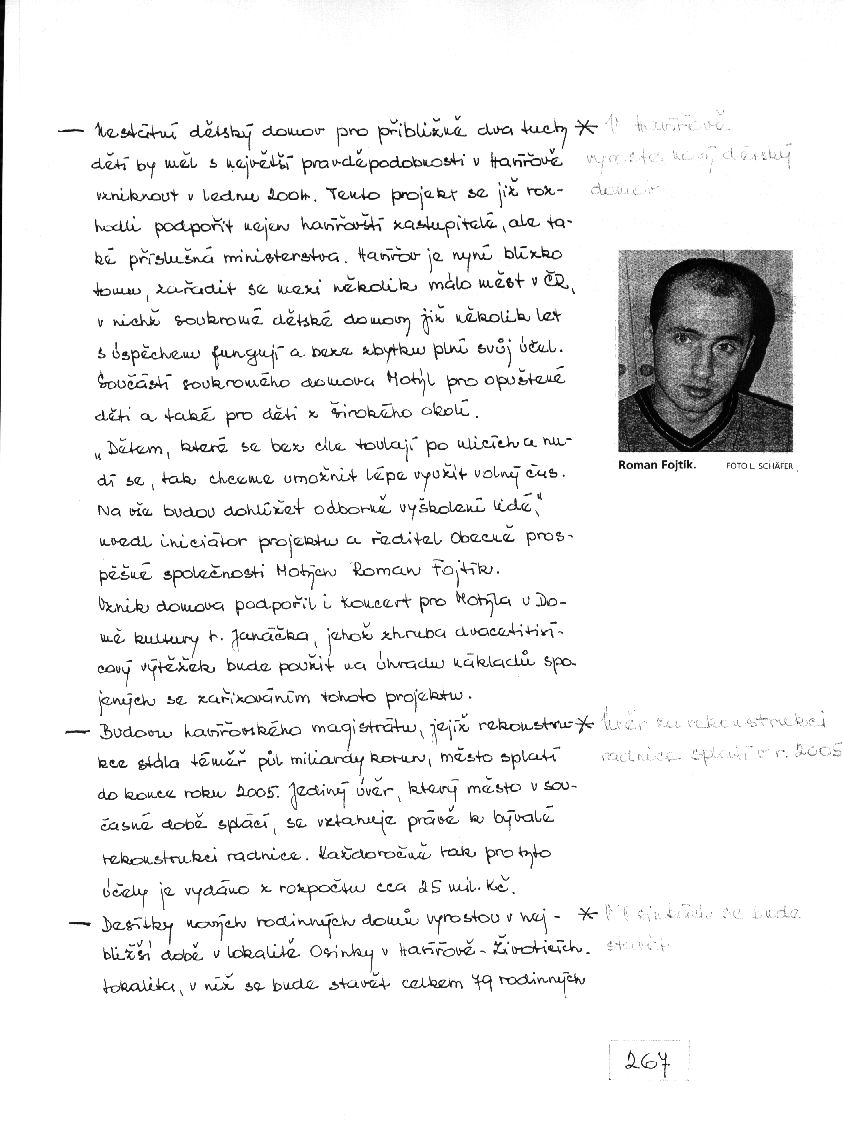 — Nestátní dětský domov pro přibližně dva tucty * V Havířově
dětí by měl s největší pravděpodobností v Havířově vyroste nový dětský
vzniknout v lednu 2004. Tento projekt se již roz- domov
hodli podpořit nejen havířovští zastupitelé, ale ta-
ké příslušná ministerstva. Havířov je nyní blízko
tomu, zařadit se mezi několik málo měst v ČR,
v nichž soukromé dětské domovy již několik let
s úspěchem fungují a beze zbytku plní svůj účel.
Součástí soukromého domova Motýl pro opuštěné
děti a také pro děti z širokého okolí.
„Dětem, které se bez cíle toulají po ulicích a nu-
dí se, tak chceme umožnit lépe využít volný čas.
Na vše budou dohlížet odborně vyškolení lidé,"
uvedl iniciátor projektu a ředitel Obecně pros-
pěšné společnosti Motýlek Roman Fojtík.
Roman Fojtík. FOTO L. SCHÄFER
Vznik domova podpořil i koncert pro Motýla v Do-
mě kultury L. Janáčka, jehož zhruba dvacetitisí-
cový výtěžek bude použit na úhradu nákladů spo-
jených se zařizováním tohoto projektu.
— Budovu havířovského magistrátu, jejíž rekonstru- * Úvěr za rekonstrukci
kce stála téměř půl miliardy korun, město splatí radnice splatí v r. 2005
do konce roku 2005. Jediný úvěr, který město v sou-
časné době splácí, se vztahuje právě k bývalé
rekonstrukci radnice. Každoročně tak pro tyto
účely je vydáno z rozpočtu cca 25 mil. Kč.
— Desítky nových rodinných domů vyrostou v nej- * se bude
bližší době v lokalitě Osinky v Havířově-Životicích. stavět
Lokalita, v níž se bude stavět celkem 79 rodinných
267